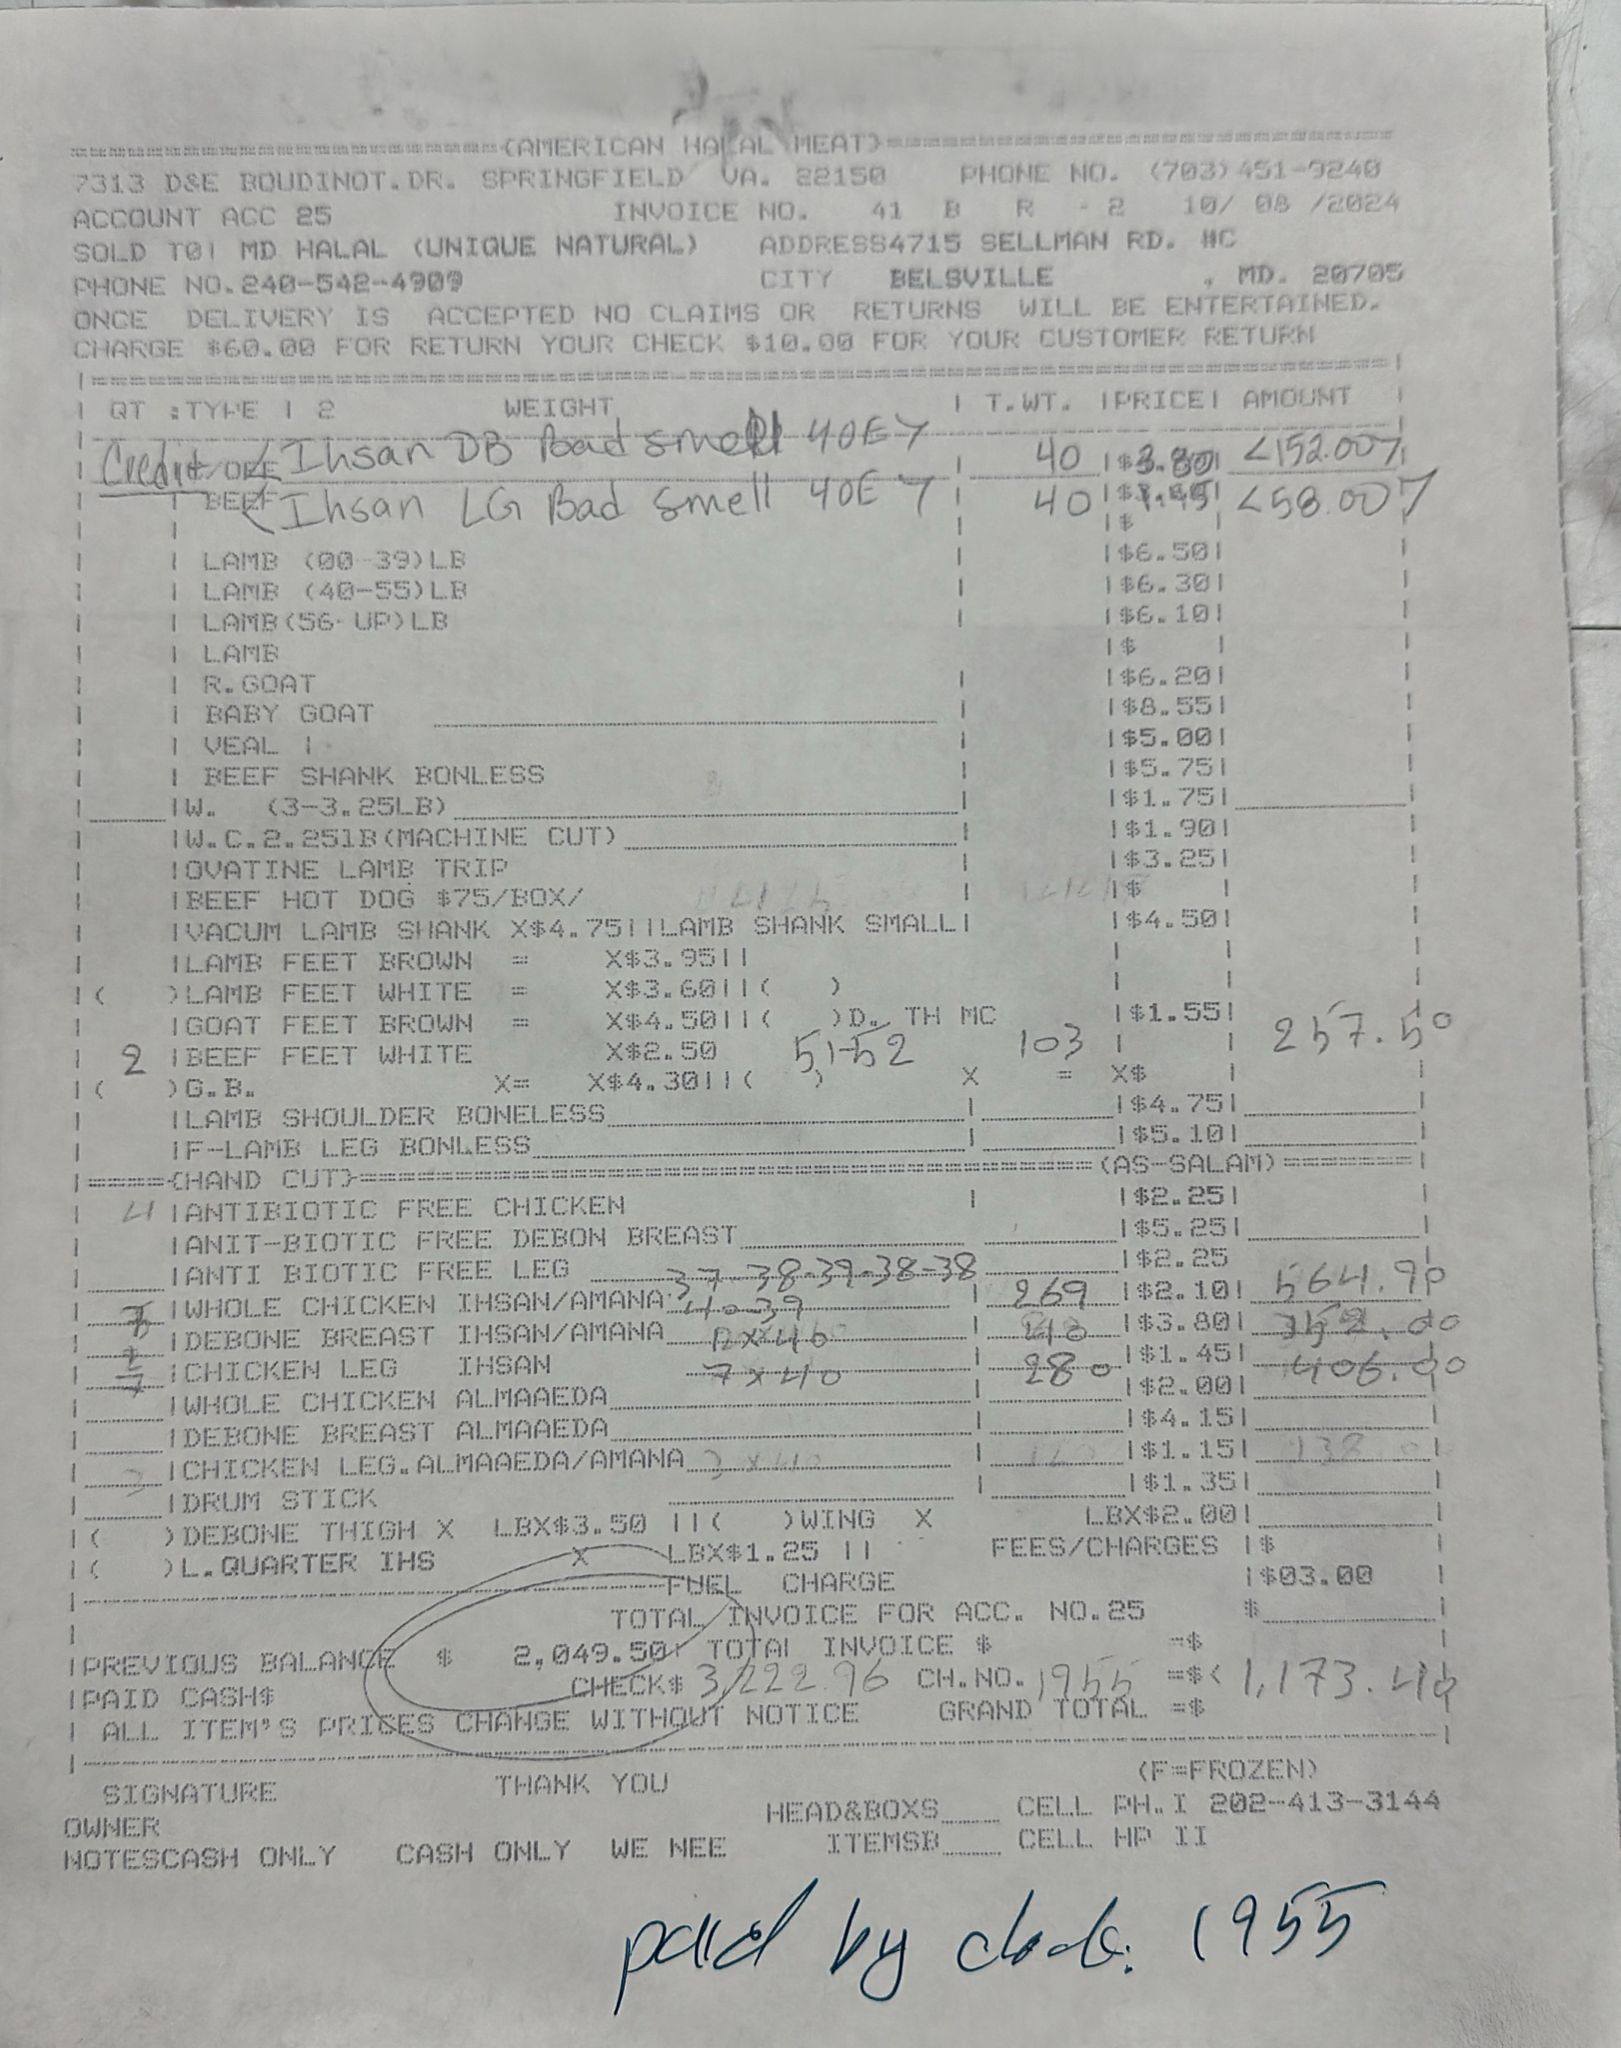 (AMERICAN HALAL MEAT)
7313 D&E BOUDINOT.DR. SPRINGFIELD VA. 22150 PHONE NO. (703)451-9240
ACCOUNT ACC 25 INVOICE NO. 41 B R - 2 10/ 08 /2024
SOLD TO| MD HALAL (UNIQUE NATURAL) ADDRESS4715 SELLMAN RD. #C
PHONE NO.240-542-4909 CITY BELSVILLE , MD. 20705
ONCE DELIVERY IS ACCEPTED NO CLAIMS OR RETURNS WILL BE ENTERTAINED.
CHARGE $60.00 FOR RETURN YOUR CHECK $10.00 FOR YOUR CUSTOMER RETURN
QT :TYPE | 2 WEIGHT | T.WT. |PRICE| AMOUNT
Credit < Ihsan DB Bad smell 40E> 40 |$3.80| <152.00>
BEEF < Ihsan LG Bad smell 40E> 40 |$1.45| <58.00>
|$ |
| LAMB (00-39)LB |$6.50|
| LAMB (40-55)LB |$6.30|
| LAMB(56-UP)LB |$6.10|
| LAMB |$ |
| R.GOAT |$6.20|
| BABY GOAT |$8.55|
| VEAL | |$5.00|
| BEEF SHANK BONLESS |$5.75|
|W. (3-3.25LB) |$1.75|
|W.C.2.25lB(MACHINE CUT) |$1.90|
|OVATINE LAMB TRIP |$3.25|
|BEEF HOT DOG $75/BOX/ |$ |
|VACUM LAMB SHANK X$4.75||LAMB SHANK SMALL| |$4.50|
|LAMB FEET BROWN = X$3.95||
|( )LAMB FEET WHITE = X$3.60||( )
|GOAT FEET BROWN = X$4.50||( )D. TH MC |$1.55|
2 |BEEF FEET WHITE X$2.50 51-52 103 257.50
|( )G.B. X= X$4.30||( ) X = X$ |
|LAMB SHOULDER BONELESS |$4.75|
|F-LAMB LEG BONLESS |$5.10|
|=====(HAND CUT)=====(AS-SALAM)=======|
4 |ANTIBIOTIC FREE CHICKEN |$2.25|
|ANIT-BIOTIC FREE DEBON BREAST |$5.25|
|ANTI BIOTIC FREE LEG |$2.25
37-38-39-38-38
7 |WHOLE CHICKEN IHSAN/AMANA 40-39 269 |$2.10| 564.90
|DEBONE BREAST IHSAN/AMANA 40 |$3.80| 152.00
7 |CHICKEN LEG IHSAN 7x40 280 |$1.45| 406.00
|WHOLE CHICKEN ALMAAEDA |$2.00|
|DEBONE BREAST ALMAAEDA |$4.15|
3 |CHICKEN LEG.ALMAAEDA/AMANA 3 x40 |$1.15| 138
|DRUM STICK |$1.35|
|( )DEBONE THIGH X LBX$3.50 ||( )WING X LBX$2.00|
|( )L.QUARTER IHS X LBX$1.25 || FEES/CHARGES |$
FUEL CHARGE |$03.00
TOTAL INVOICE FOR ACC. NO.25 $
|PREVIOUS BALANCE $ 2,049.50| TOTAL INVOICE $ =$
|PAID CASH$ CHECK$ 3,222.96 CH.NO. 1955 =$< 1,173.46
| ALL ITEM'S PRICES CHANGE WITHOUT NOTICE GRAND TOTAL =$
(F=FROZEN)
SIGNATURE THANK YOU
HEAD&BOXS CELL PH.I 202-413-3144
OWNER
ITEMSB CELL HP II
NOTESCASH ONLY CASH ONLY WE NEE
paid by check. 1955